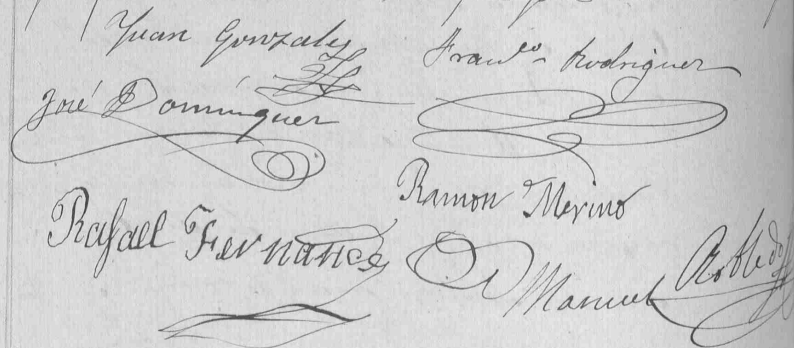 Juan Gonzales
Franco Rodriguez
José Dominguez
Ramon Merino
Rafael Fernance
Manuel Robledo